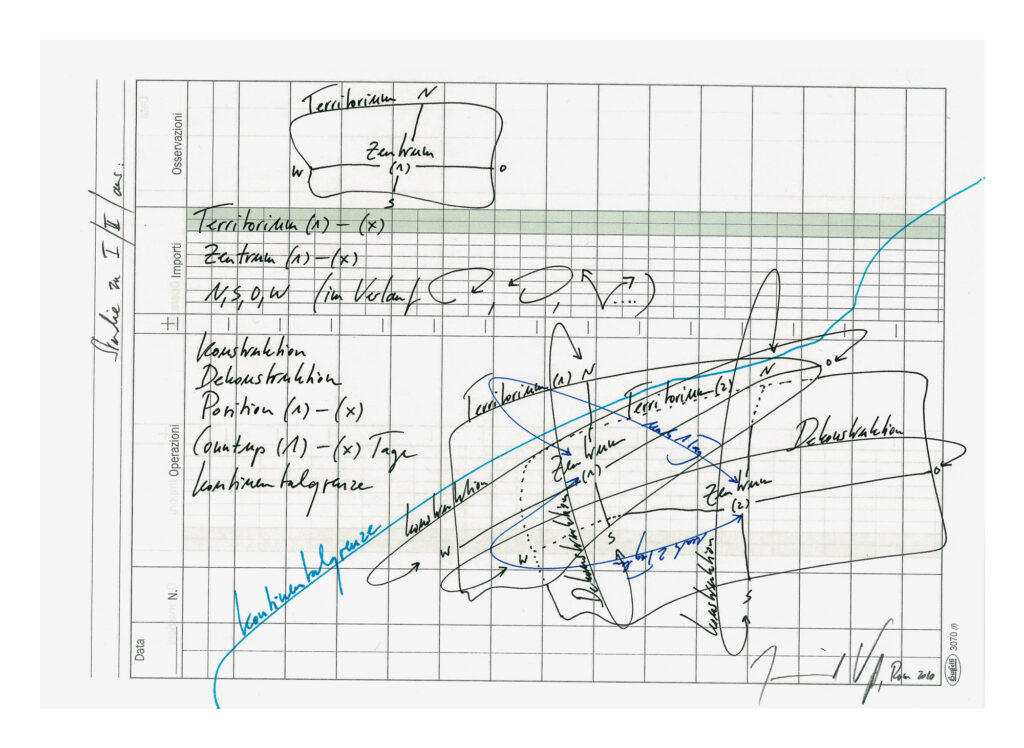 Studie zu I/II/aus.
Osservazioni
Territorium N
Zentrum
W (1) O
S
Importi
Territorium (1) – (x)
Zentrum (1) – (x)
N, S, O, W (im Verlauf , , ....)
Operazioni
Konstruktion
Dekonstruktion
Position (1) – (x)
Countup (1) – (x) Tage
Kontinentalgrenze
Territorium (1) N
Territorium (2) N O
nach 1 Tag
Dekonstruktion
Zentrum
(1)
Zentrum
(2)
O
Konstruktion
W
W
Dekonstruktion
S
nach 2 Tagen
Konstruktion
S
Kontinentalgrenze
N.
Data
Rom 2010
Buffetti 3070 (f)